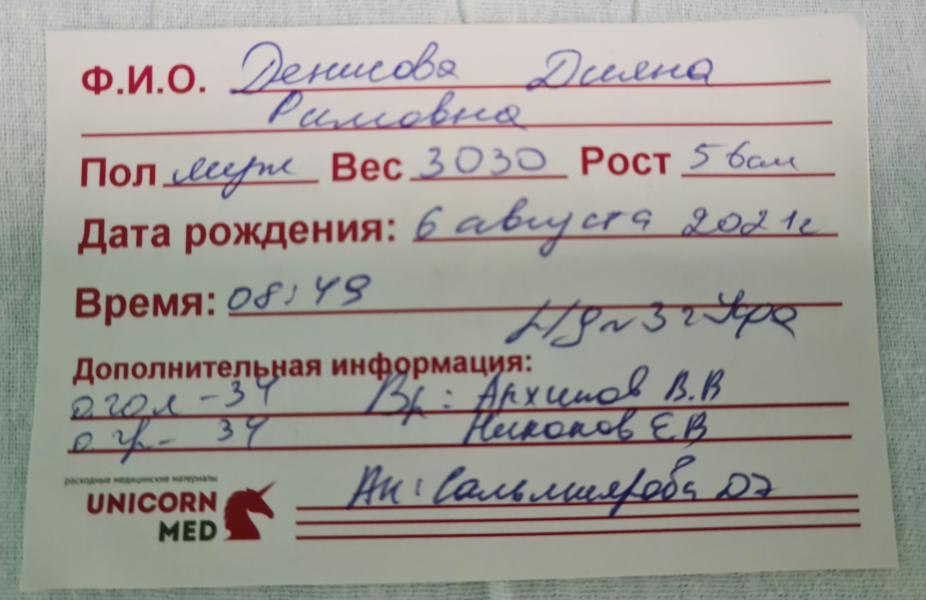 Ф.И.О. Денисова Диана
Римовна
Пол муж Вес 3030 Рост 56 см
Дата рождения: 6 августа 2021г
Время: 08:49
№3 г Уфа
Дополнительная информация:
о.гол - 34 Вр: Архипов В.В
о.гр - 34 Никонов Е.В
расходные медицинские материалы
UNICORN
MED
Ак: